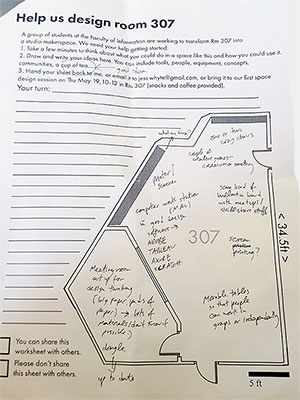 Help us design room 307
A group of students at the Faculty of Information are working to transform Rm 307 into
a studio makerspace. We need your help getting started:
1. Take a few minutes to think about what you could do in a space like this and how you could use it.
2. Draw and write your ideas here. You can include tools, people, equipment, concepts,
communities, a cup of tea...
3. Hand your sheet back to me, or email it to jess.whyte@gmail.com, or bring it to our first space
design session on Thu May 19, 10-12 in Rm 307 (snacks and coffee provided).
Your turn:
what is this?
one or two
cozy chairs
couple of
creative
Printer/
scanner
computer work station
(MAC)
w good design
software →
ADOBE
TABLEAU
AXURE
some kind of
bulletin board
with meetups/
stuff
307
screen
printing?
< 34.5ft >
Meeting room
set up for
design thinking
(big paper/pads of
paper) → lots of
materials (don't know if
possible)
Movable tables
so that people
can work in
groups or independently
dongle
up to date
You can share this
worksheet with others.
Please don't share
this sheet with others.
5 ft